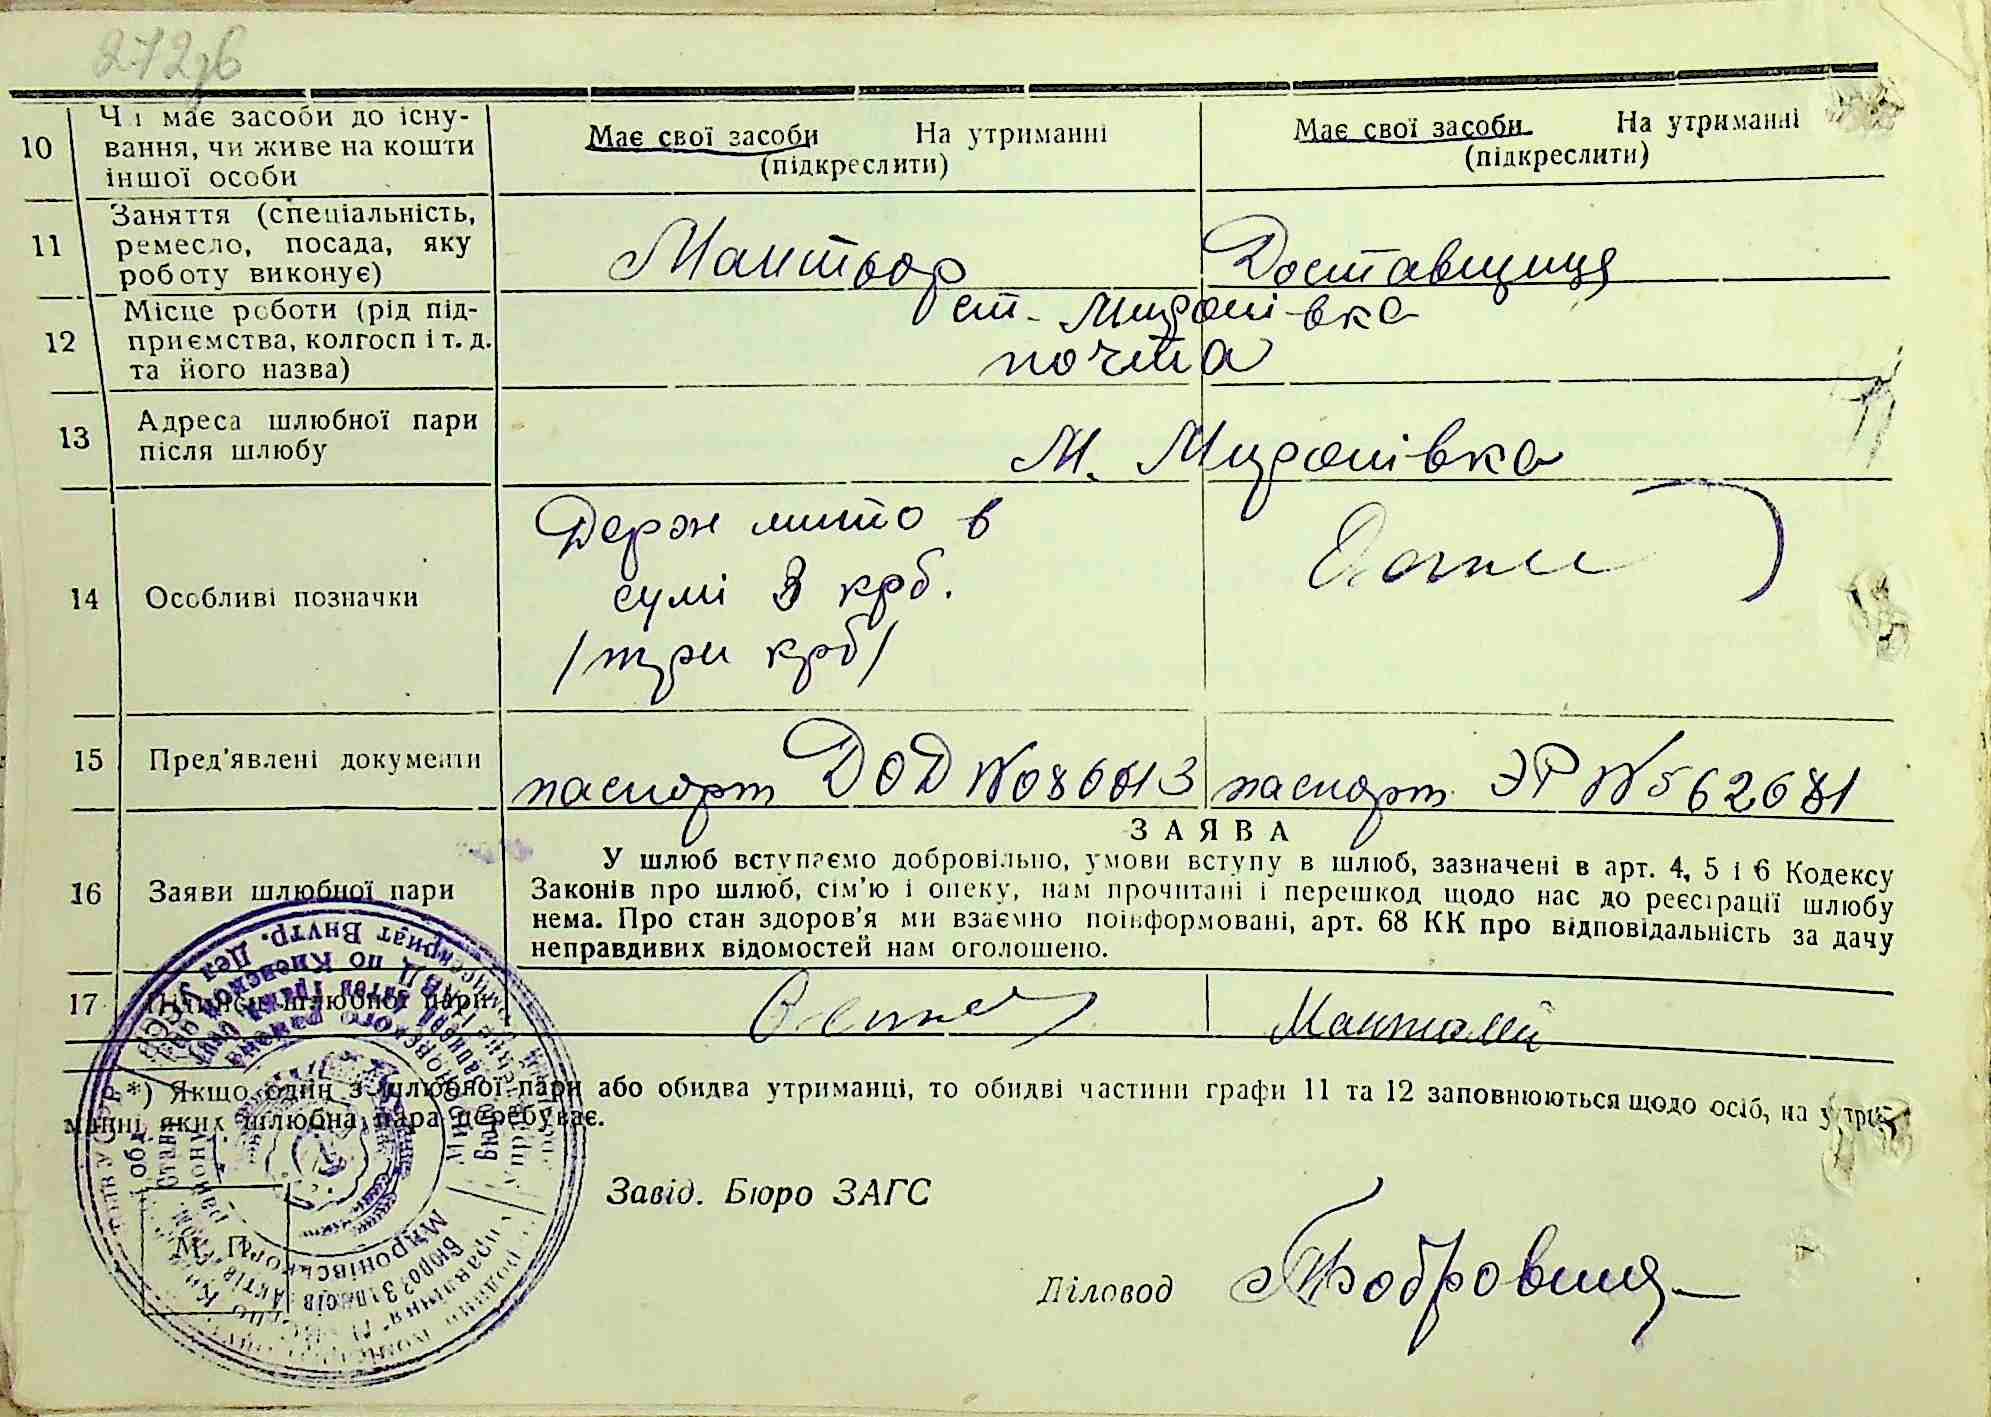 10 Чи має засоби до існу-
вання, чи живе на кошти
іншої особи
Має свої засоби На утриманні
(підкреслити)
Має свої засоби На утриманні
(підкреслити)
11 Заняття (спеціальність,
ремесло, посада, яку
роботу виконує)
Мантьор
Доставщиця
12 Місце роботи (рід під-
приємства, колгосп і т. д.
та його назва)
ст. Миронівка
почта
13 Адреса шлюбної пари
після шлюбу
М. Миронівка
14 Особливі позначки
Держ мито в
сумі 3 крб.
/три крб/
15 Пред'явлені документи
паспорт ДОД №
паспорт ЭР № 562681
ЗАЯВА
16 Заяви шлюбної пари
У шлюб вступаємо добровільно, умови вступу в шлюб, зазначені в арт. 4, 5 і 6 Кодексу
Законів про шлюб, сім'ю і опеку, нам прочитані і перешкод щодо нас до реєстрації шлюбу
нема. Про стан здоров'я ми взаємно поінформовані, арт. 68 КК про відповідальність за дачу
неправдивих відомостей нам оголошено.
17 Підписи шлюбної пари
*) Якщо один з шлюбної пари або обидва утриманці, то обидві частини графи 11 та 12 заповнюються щодо осіб, на утри-
манні яких шлюбна пара перебуває.
Завід. Бюро ЗАГС
М. П.
Діловод